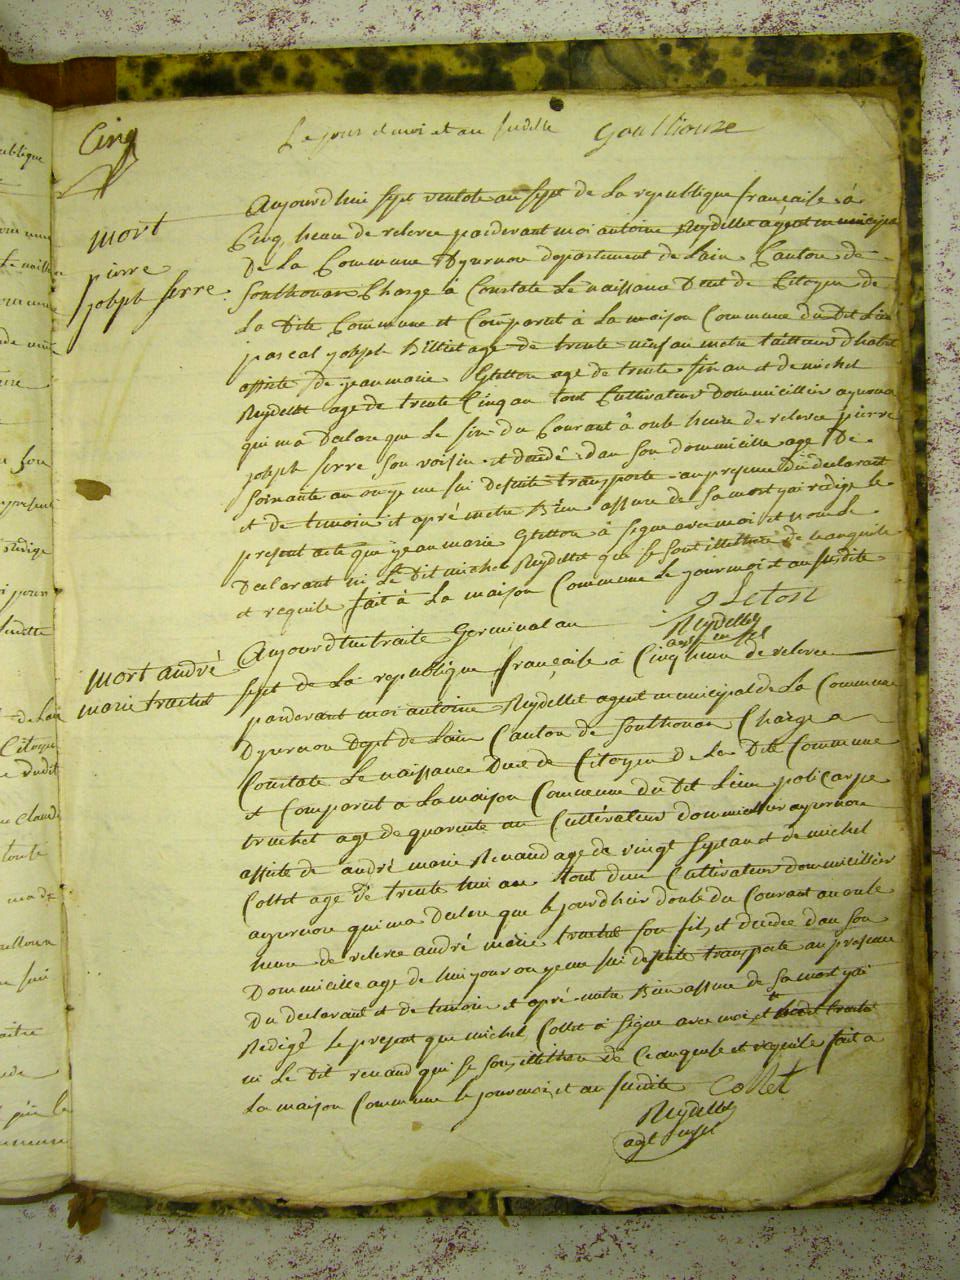 Cinq
Le jour et moi et an sudite goulliouze
mort
pierre
joseph serre
Aujourd'hui sept ventote an sept de La republique française à
Cinq heure de relevee parderant moi antoine Reydellet agent municipal
De La Commune Dyzernou departement de Lain Canton de
Southonax Charge à Constate Le naissance Dect de Citoyen de
La Dite Commune et Comparut à La maison Commune du Dit Lieu
pascal joseph age de trente neuf an maitre tailleur dhabit
assiste de jean marie Gletton age de trente sin an et de michel
Reydellet age de trente Cinq an tout Cultivateur domicillier
qui ma Dalare que Le sin du Courant à onle heure de relevee pierre
joseph serre son voisin et decedé dan son dommicille age De
soixante an onze me sui desuite transporte au presence du declarant
et de temoin et apré metre Bien assure de sa mort jai redige le
present acte que jean marie Gletton à signe avec moi et non le
Declarant ni Le Dit michel Reydellet que se sont illetthere de
et requile fait à La maison Commune Le jour moi et an sudite
Reydellet
mort andré
marie truchet
Aujourd'hui traite Germinal an
sept de La republique française à Cinq heure de relevee
parderant moi antoine Reydellet agent municipal de La Commune
Dept de Lain Canton de Southonax Charge a
Constate Le naissance de Citoyen De La Dite Commune
et Comparut a La maison Commune du Dit Lieu policarpe
truchet age de quarente an Cultivateur dommicillier
assiste de andré marie Renaud age de vingt sept an et de michel
Collet age de trente hui an tout deux Cultivateur dommicillier
qui ma Dalare que le jourdhui double du Courant an onle
heure de relevee andré marie truchet son fils et decedee dan son
Dommicille age de hui jour on ze me sui desuite transporte au presence
Du declarant et de temoin et apré metre Bien assure de sa mort jai
Redigé le present que michel Collet à signe avec moi et
ni Le Dit renaud qui se sont illetthere de Ceanquile et requile fait a
La maison Commune le jour moi et an sudite Collet
Reydellet
agt